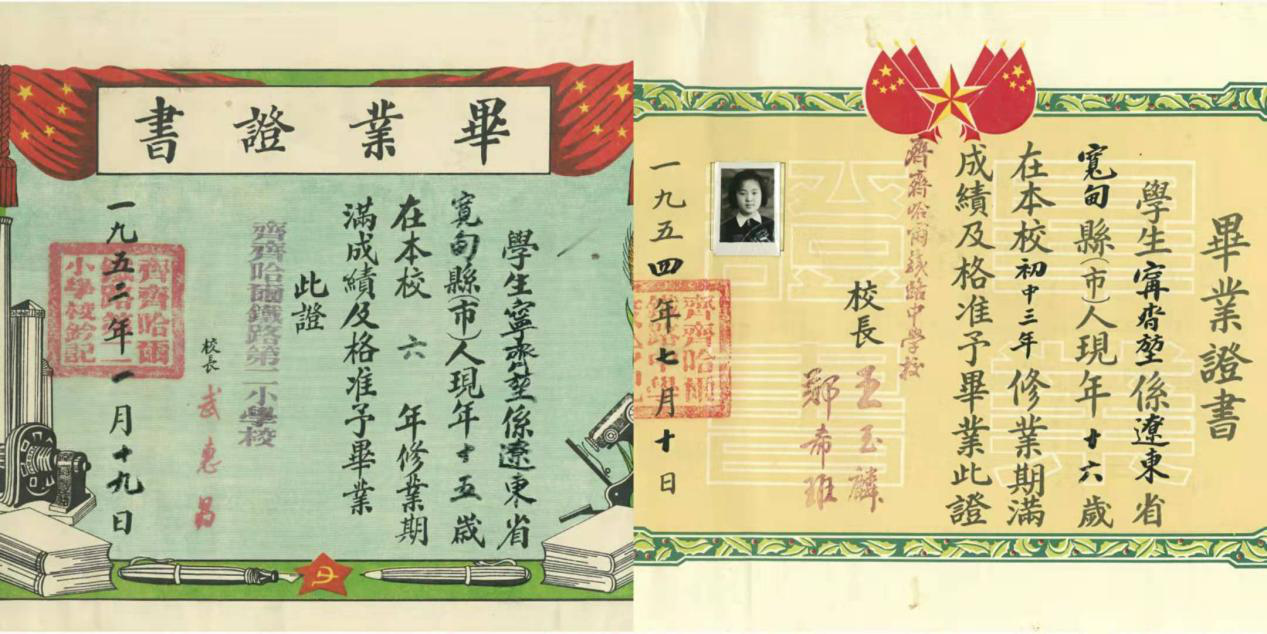 畢業證書
學生寧齊堃係遼東省
寬甸縣(市)人現年十五歲
在本校六年修業期
滿成績及格准予畢業
此證
齊齊哈爾鐵路第二小學校
校長 武惠昌
一九五二年一月十九日
齊齊哈爾
鐵路第二
小學校鈐記
畢業證書
學生甯齊堃係遼東省
寬甸縣(市)人現年十六歲
在本校初中三年修業期滿
成績及格准予畢業此證
齊齊哈爾鐵路中學校
校長 王玉麟
鄒希班
一九五四年七月十日
齊齊哈爾
鐵路中學
畢業證書